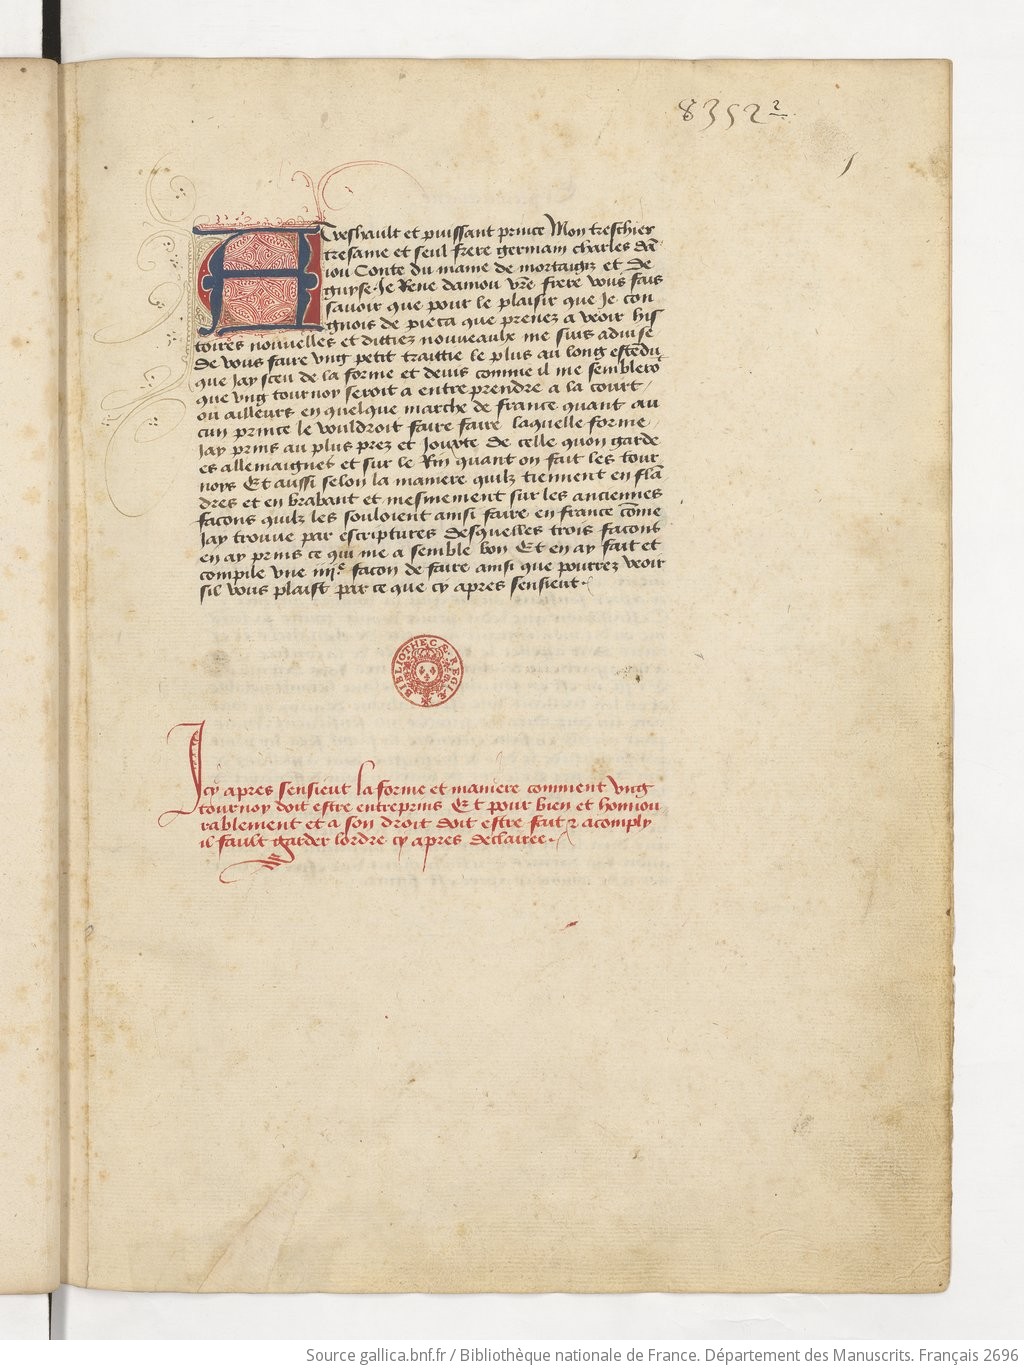 8352 2
1
A Treshault et puissant prince Mon treschier
tresame et seul frere germain charles dā
iou Conte du maine de mortaigne et de
guyse. Je Rene daniou vr̄e frere vous fais
sauoir que pour le plaisir que Je con
gnois de pieca que prenez a veoir his
toires nouuelles et dittiez nouueaulx me suis aduise
de vous faire vng petit traittie le plus au long estēdu
que Jay sceu de la forme et deuis comme il me sembleroᵗ
que vng tournoy seroit a entreprendre a la court /
ou ailleurs en quelque marche de france quant au
cun prince le vouldroit faire faire laquelle forme /
Jay prins au plus prez et Jouxte de celle quon garde
es allemaignes et sur le Rin quant on fait les tour
noys Et aussi selon la maniere quilz tiennent en flā
dres et en brabant et mesmement sur les anciennes
facons quilz les souloient ainsi faire en france cōme
Jay trouue par escriptures Desquelles trois facons
en ay prins ce qui me a semble bon Et en ay fait et
compile vne iiijᵉ facon de faire ainsi que pourrez veoir
sil vous plaist par ce que cy apres sensieut.
BIBLIOTHECÆ REGIÆ
Icy apres sensieut la forme et maniere comment vng
tournoy doit estre entreprins Et pour bien et honnou
rablement et a son droit doit estre fait ⁊ acomply
il fault garder lordre cy apres declairee.
Source gallica.bnf.fr / Bibliothèque nationale de France. Département des Manuscrits. Français 2696